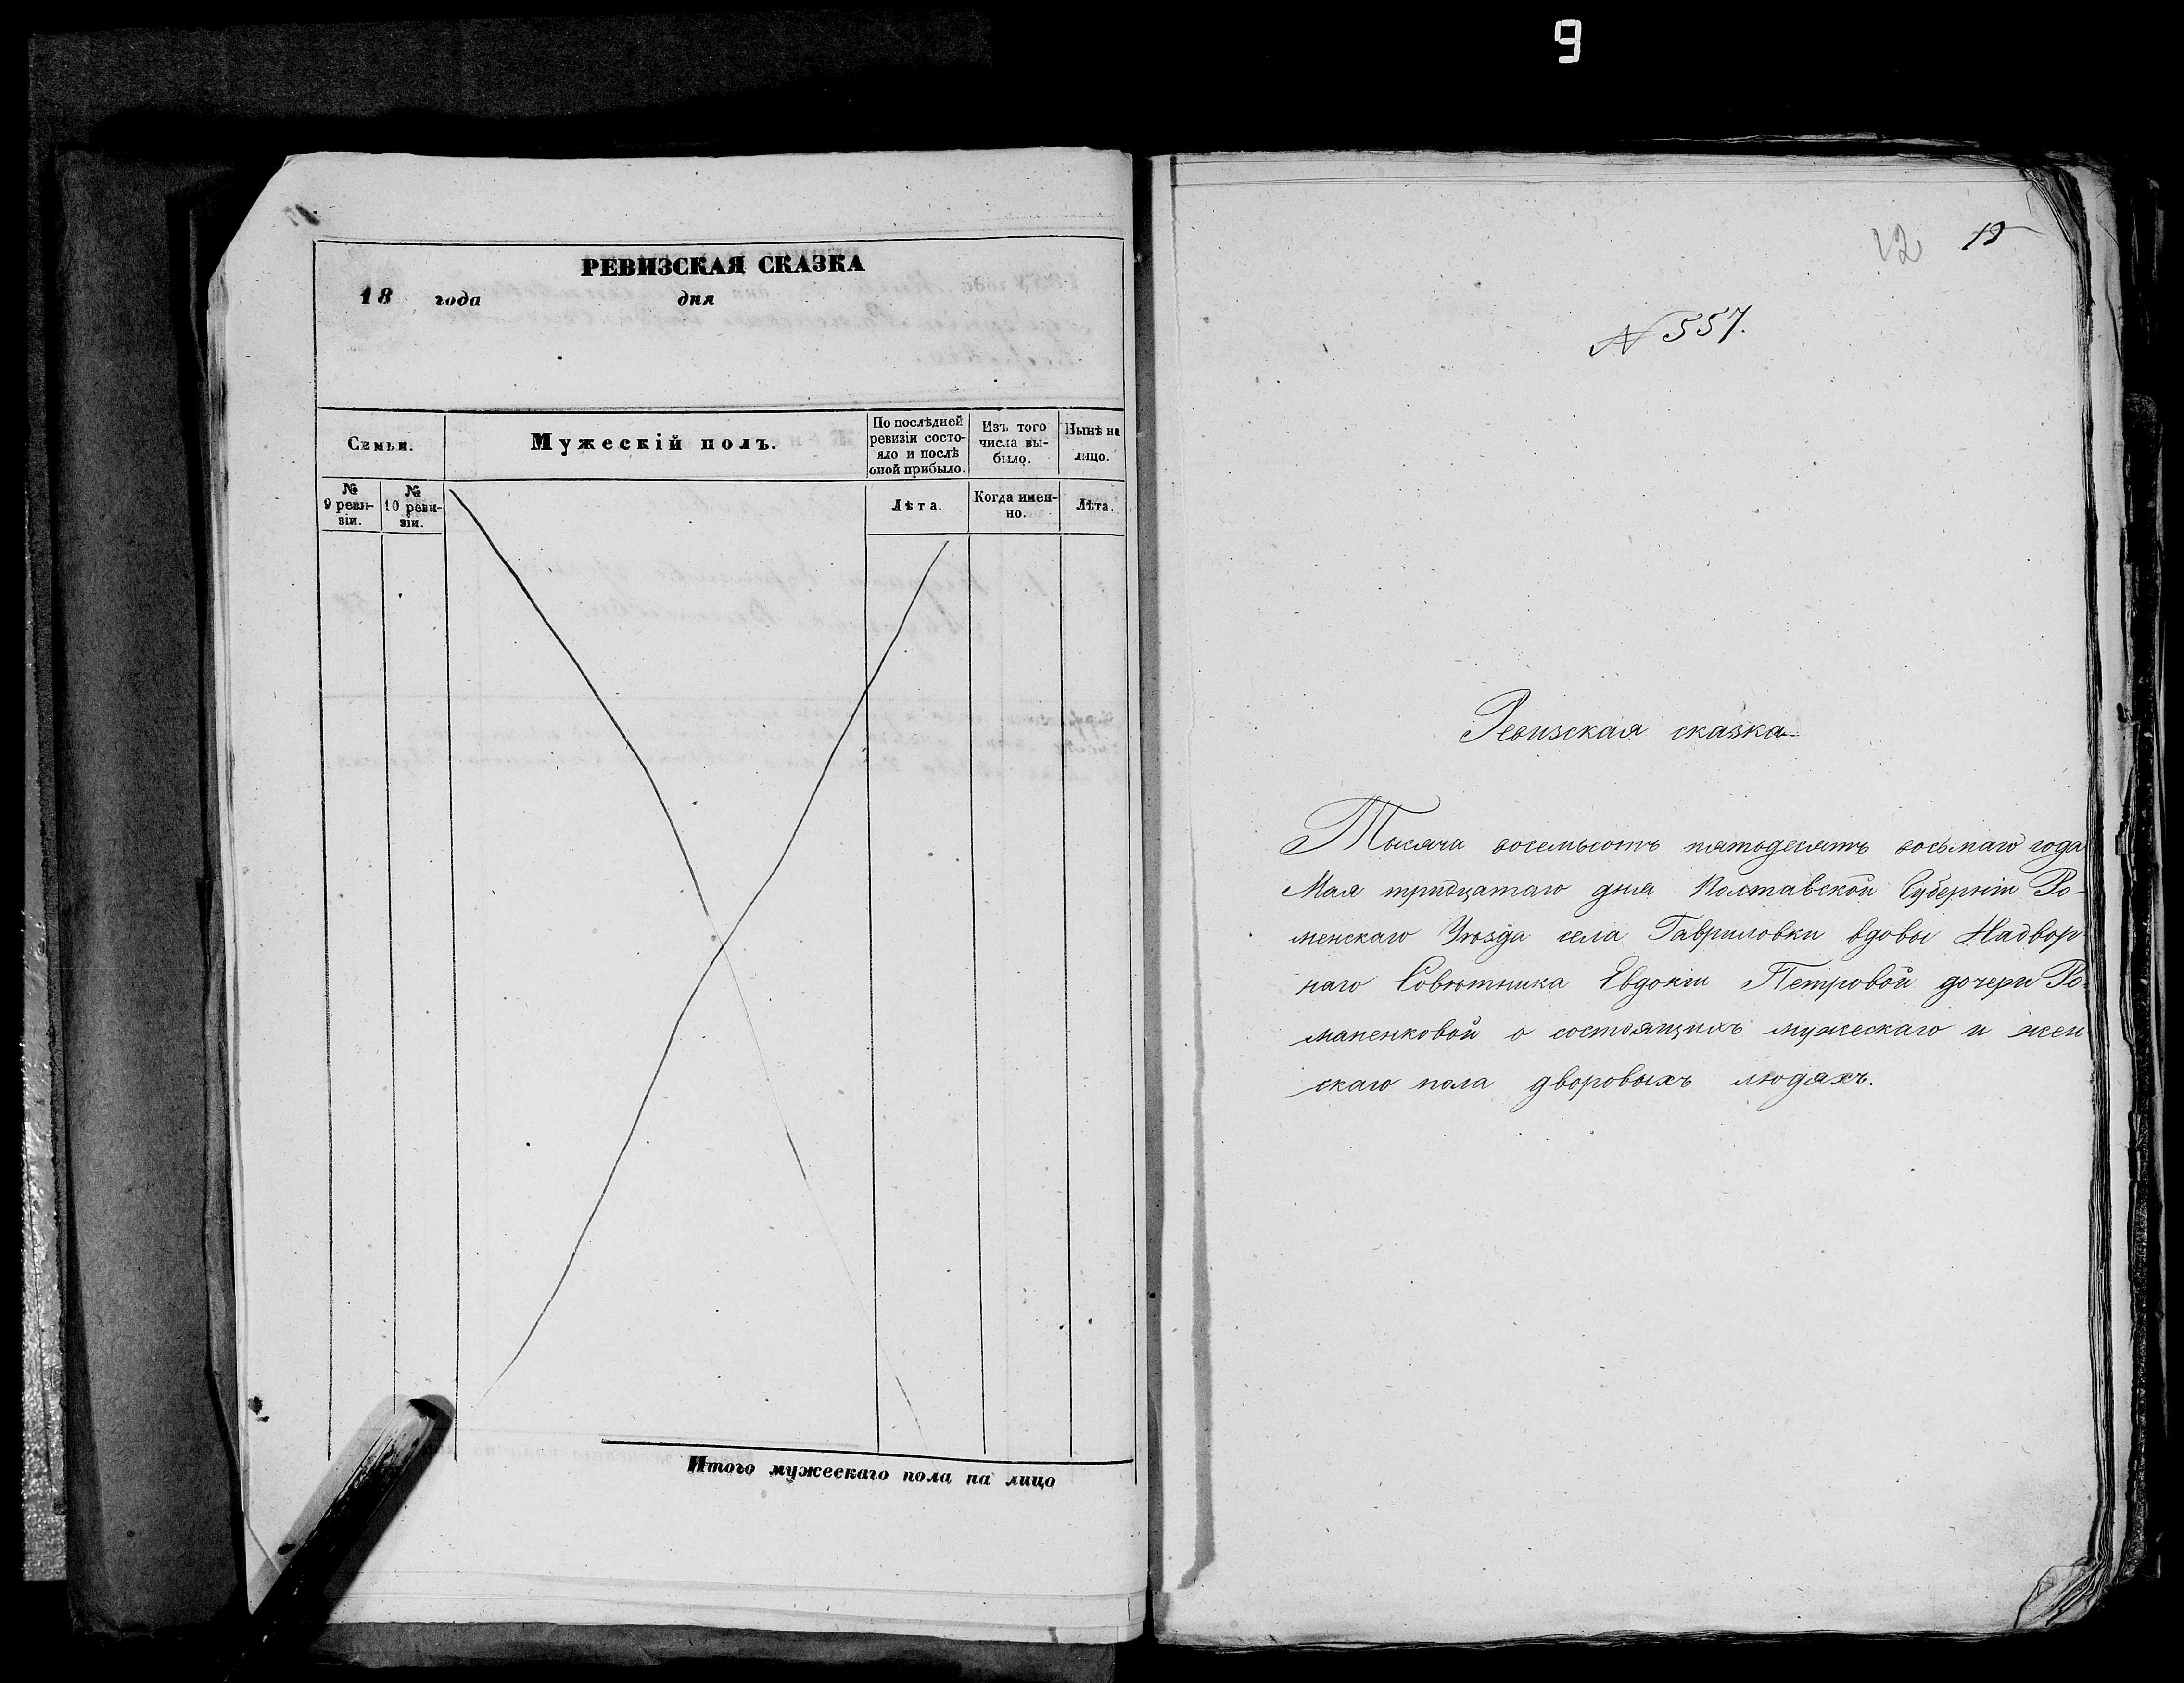 9
РЕВИЗСКАЯ СКАЗКА
18 года дня
Семьи.
Мужескій полъ.
По послѣдней ревизіи состояло и послѣ оной прибыло.
Изъ того числа выбыло.
Нынѣ на лицо.
№ 9 ревизіи.
№ 10 ревизіи.
Лѣта.
Когда именно.
Лѣта.
Итого мужескаго пола на лицо
12
№ 557.
Ревизская сказка
Тысяча восемьсотъ пятьдесятъ восьмаго года
Мая тридцатаго дня Полтавской Губерніи Ро-
менскаго Уѣзда села Гавриловки вдовы Надвор
наго Совѣтника Евдокіи Петровой дочери Ро
маненковой о состоящихъ мужескаго и жен
скаго пола дворовыхъ людяхъ.